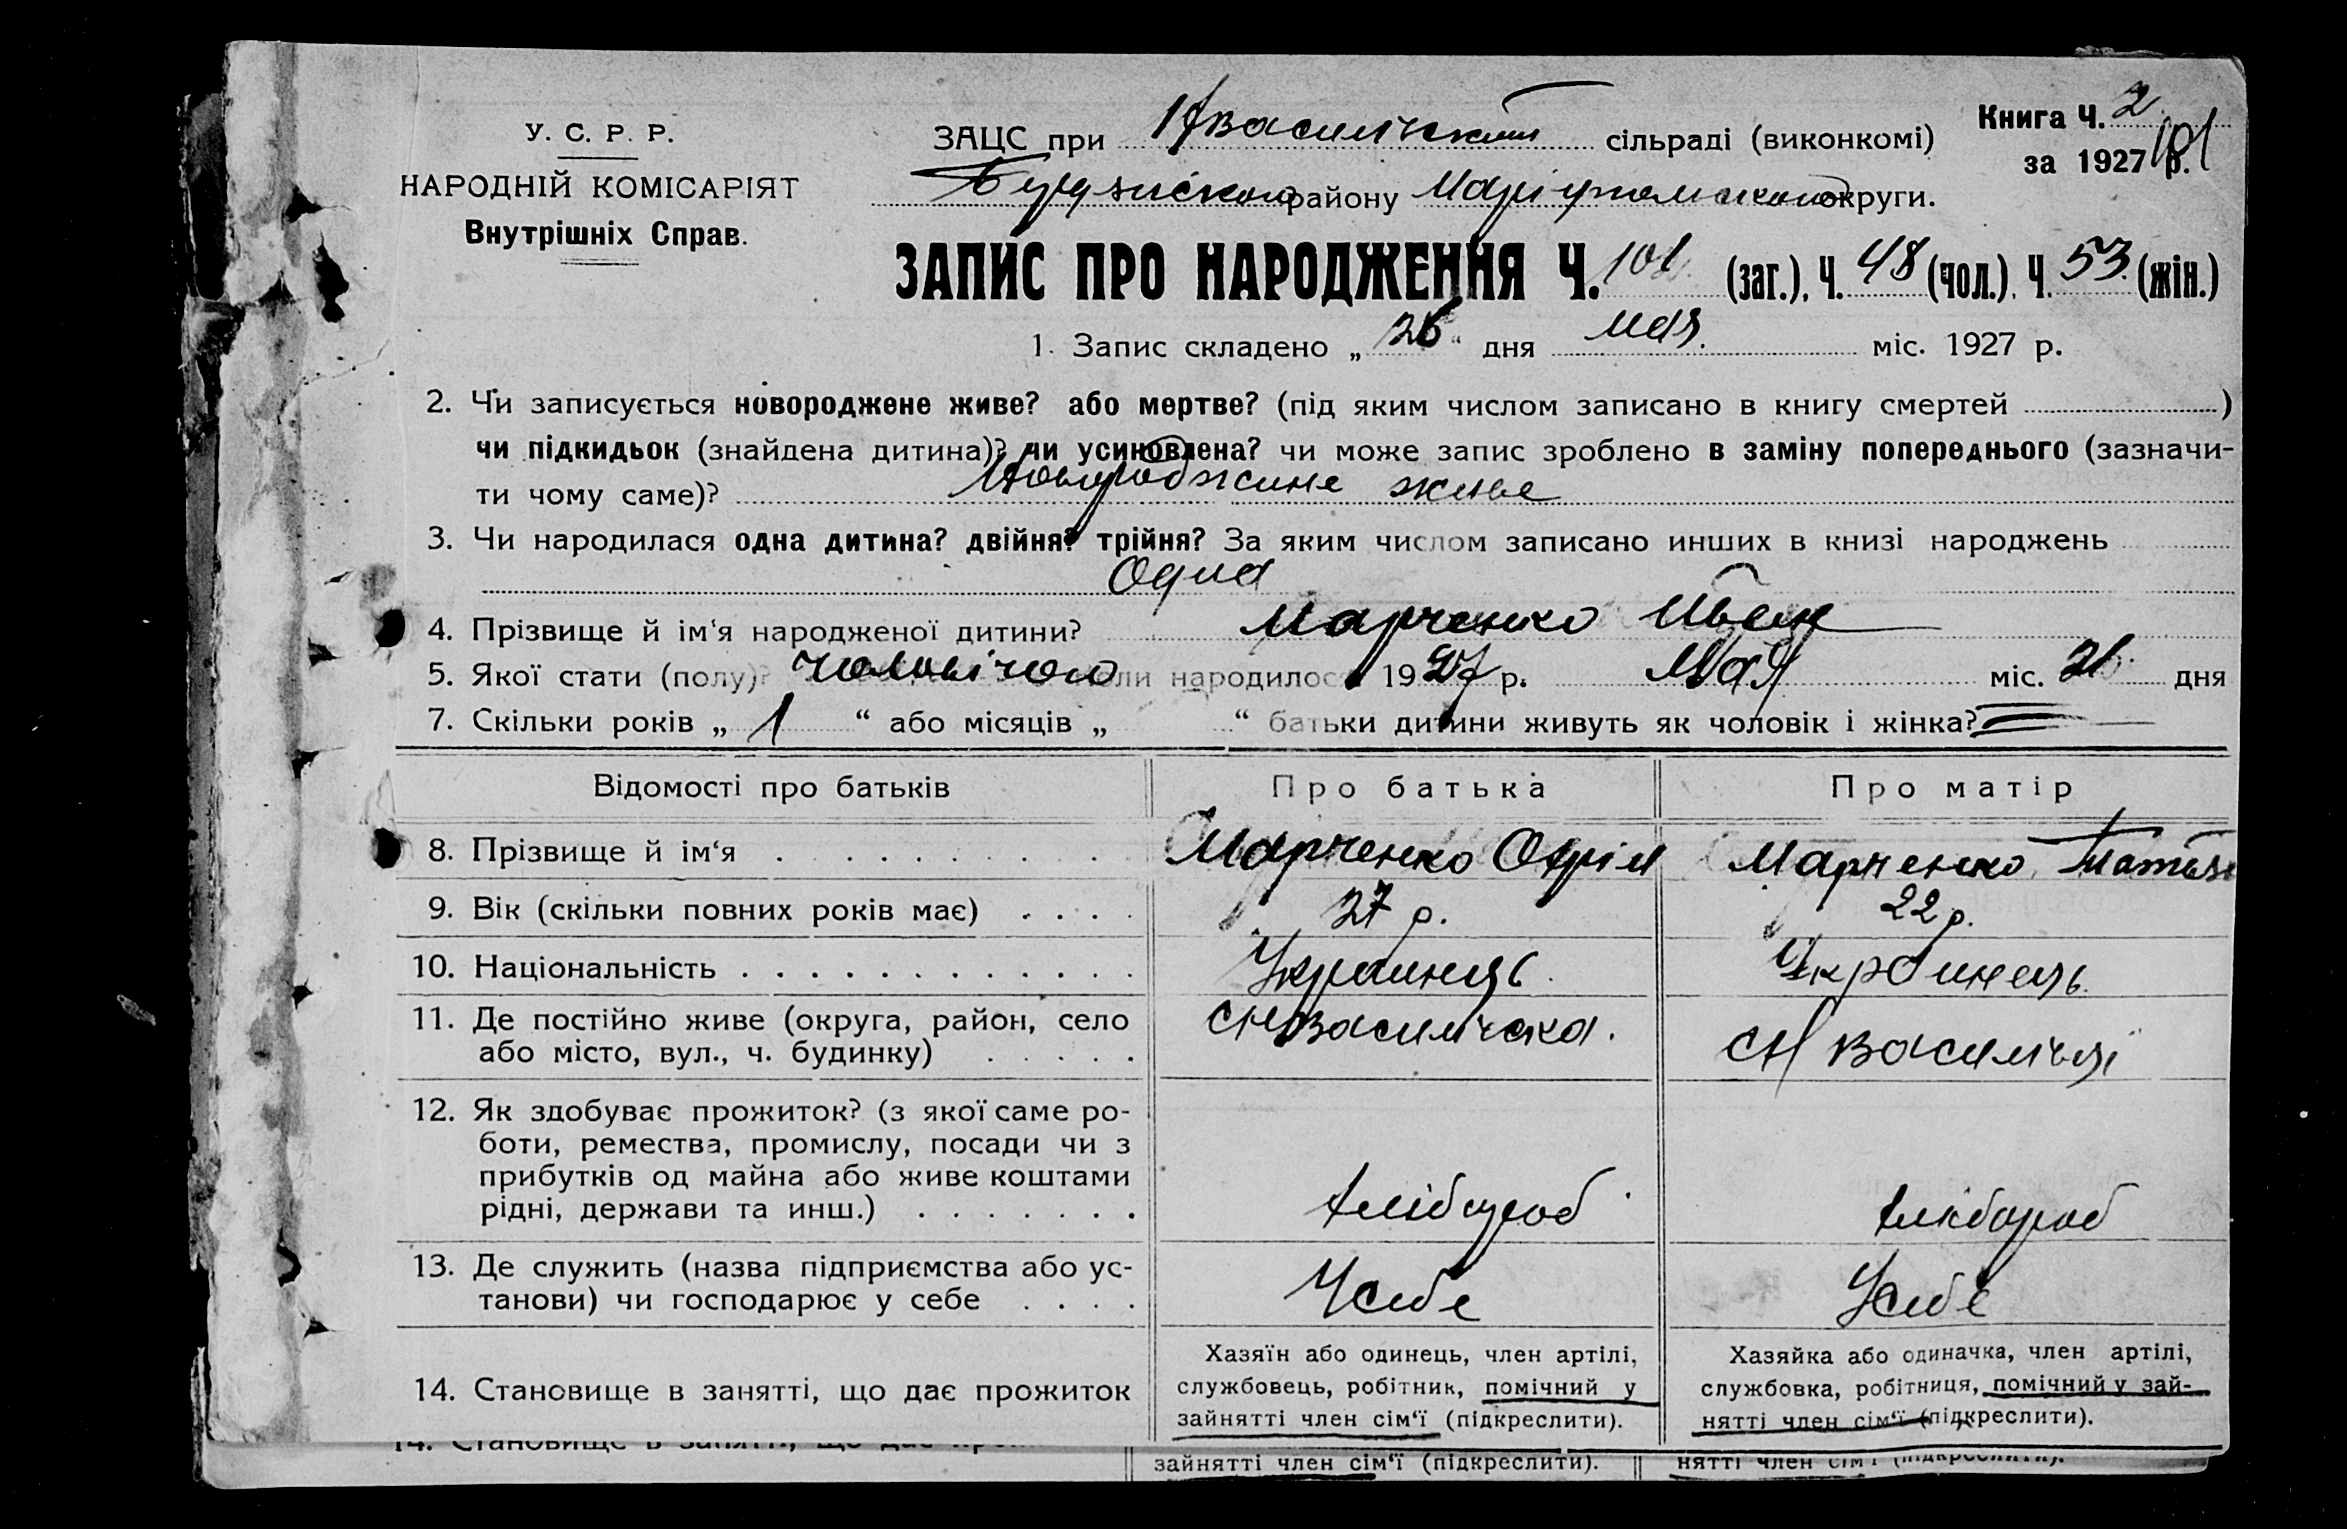 У. С. Р. Р.
НАРОДНІЙ КОМІСАРІЯТ
Внутрішніх Справ.
ЗАЦС при сільраді (виконкомі)
району Маріупольскои округи.
Книга Ч. 2
за 1927 р. 101
ЗАПИС ПРО НАРОДЖЕННЯ Ч. 101 (заг.), Ч. 48 (чол.), Ч. 53. (жін.)
1. Запис складено „ 26 “ дня мая. міс. 1927 р.
2. Чи записується новороджене живе? або мертве? (під яким числом записано в книгу смертей )
чи підкидьок (знайдена дитина)? чи усиновлена? чи може запис зроблено в заміну попереднього (зазначи-
ти чому саме)? Новороджине живе
3. Чи народилася одна дитина? двійня? трійня? За яким числом записано инших в книзі народжень
Одна
4. Прізвище й ім‘я народженої дитини? Марченко Иван
5. Якої стати (полу)? чоловічого коли народилося 1927 р. Мая міс. дня
7. Скільки років „ 1 “ або місяців „ “ батьки дитини живуть як чоловік і жінка?
Відомості про батьків Про батька Про матір
8. Прізвище й ім‘я Марченко Охрім Марченко
9. Вік (скільки повних років має) 27 р. 22 р.
10. Національність Украинець Украинець
11. Де постійно живе (округа, район, село
або місто, вул., ч. будинку)
12. Як здобуває прожиток? (з якої саме ро-
боти, ремества, промислу, посади чи з
прибутків од майна або живе коштами
рідні, держави та инш.) Хлібороб Хлібороб
13. Де служить (назва підприємства або ус-
танови) чи господарює у себе Усебе Усебе
14. Становище в занятті, що дає прожиток
Хазяїн або одинець, член артілі,
службовець, робітник, помічний у
зайнятті член сім‘ї (підкреслити).
Хазяйка або одиначка, член артілі,
службовка, робітниця, помічний у зай-
нятті член сім‘ї (підкреслити).
14. Становище в занятті, що дає
зайнятті член сім‘ї (підкреслити).
нятті член сім‘ї (підкреслити).